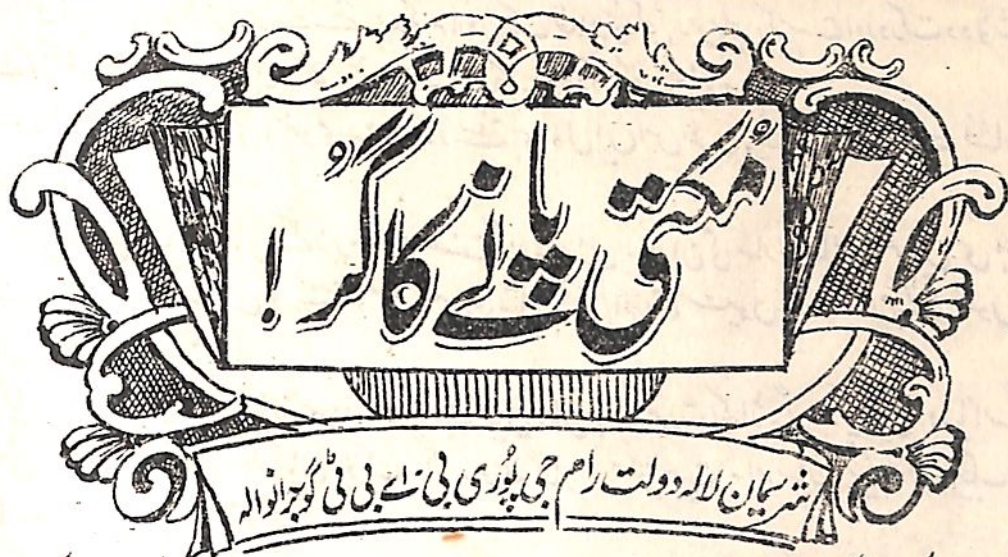 مُکتی پانے کا گُر!
شریمان لالہ دولت رام جی پُوری بی۔اے بی ٹی گوجرانوالہ